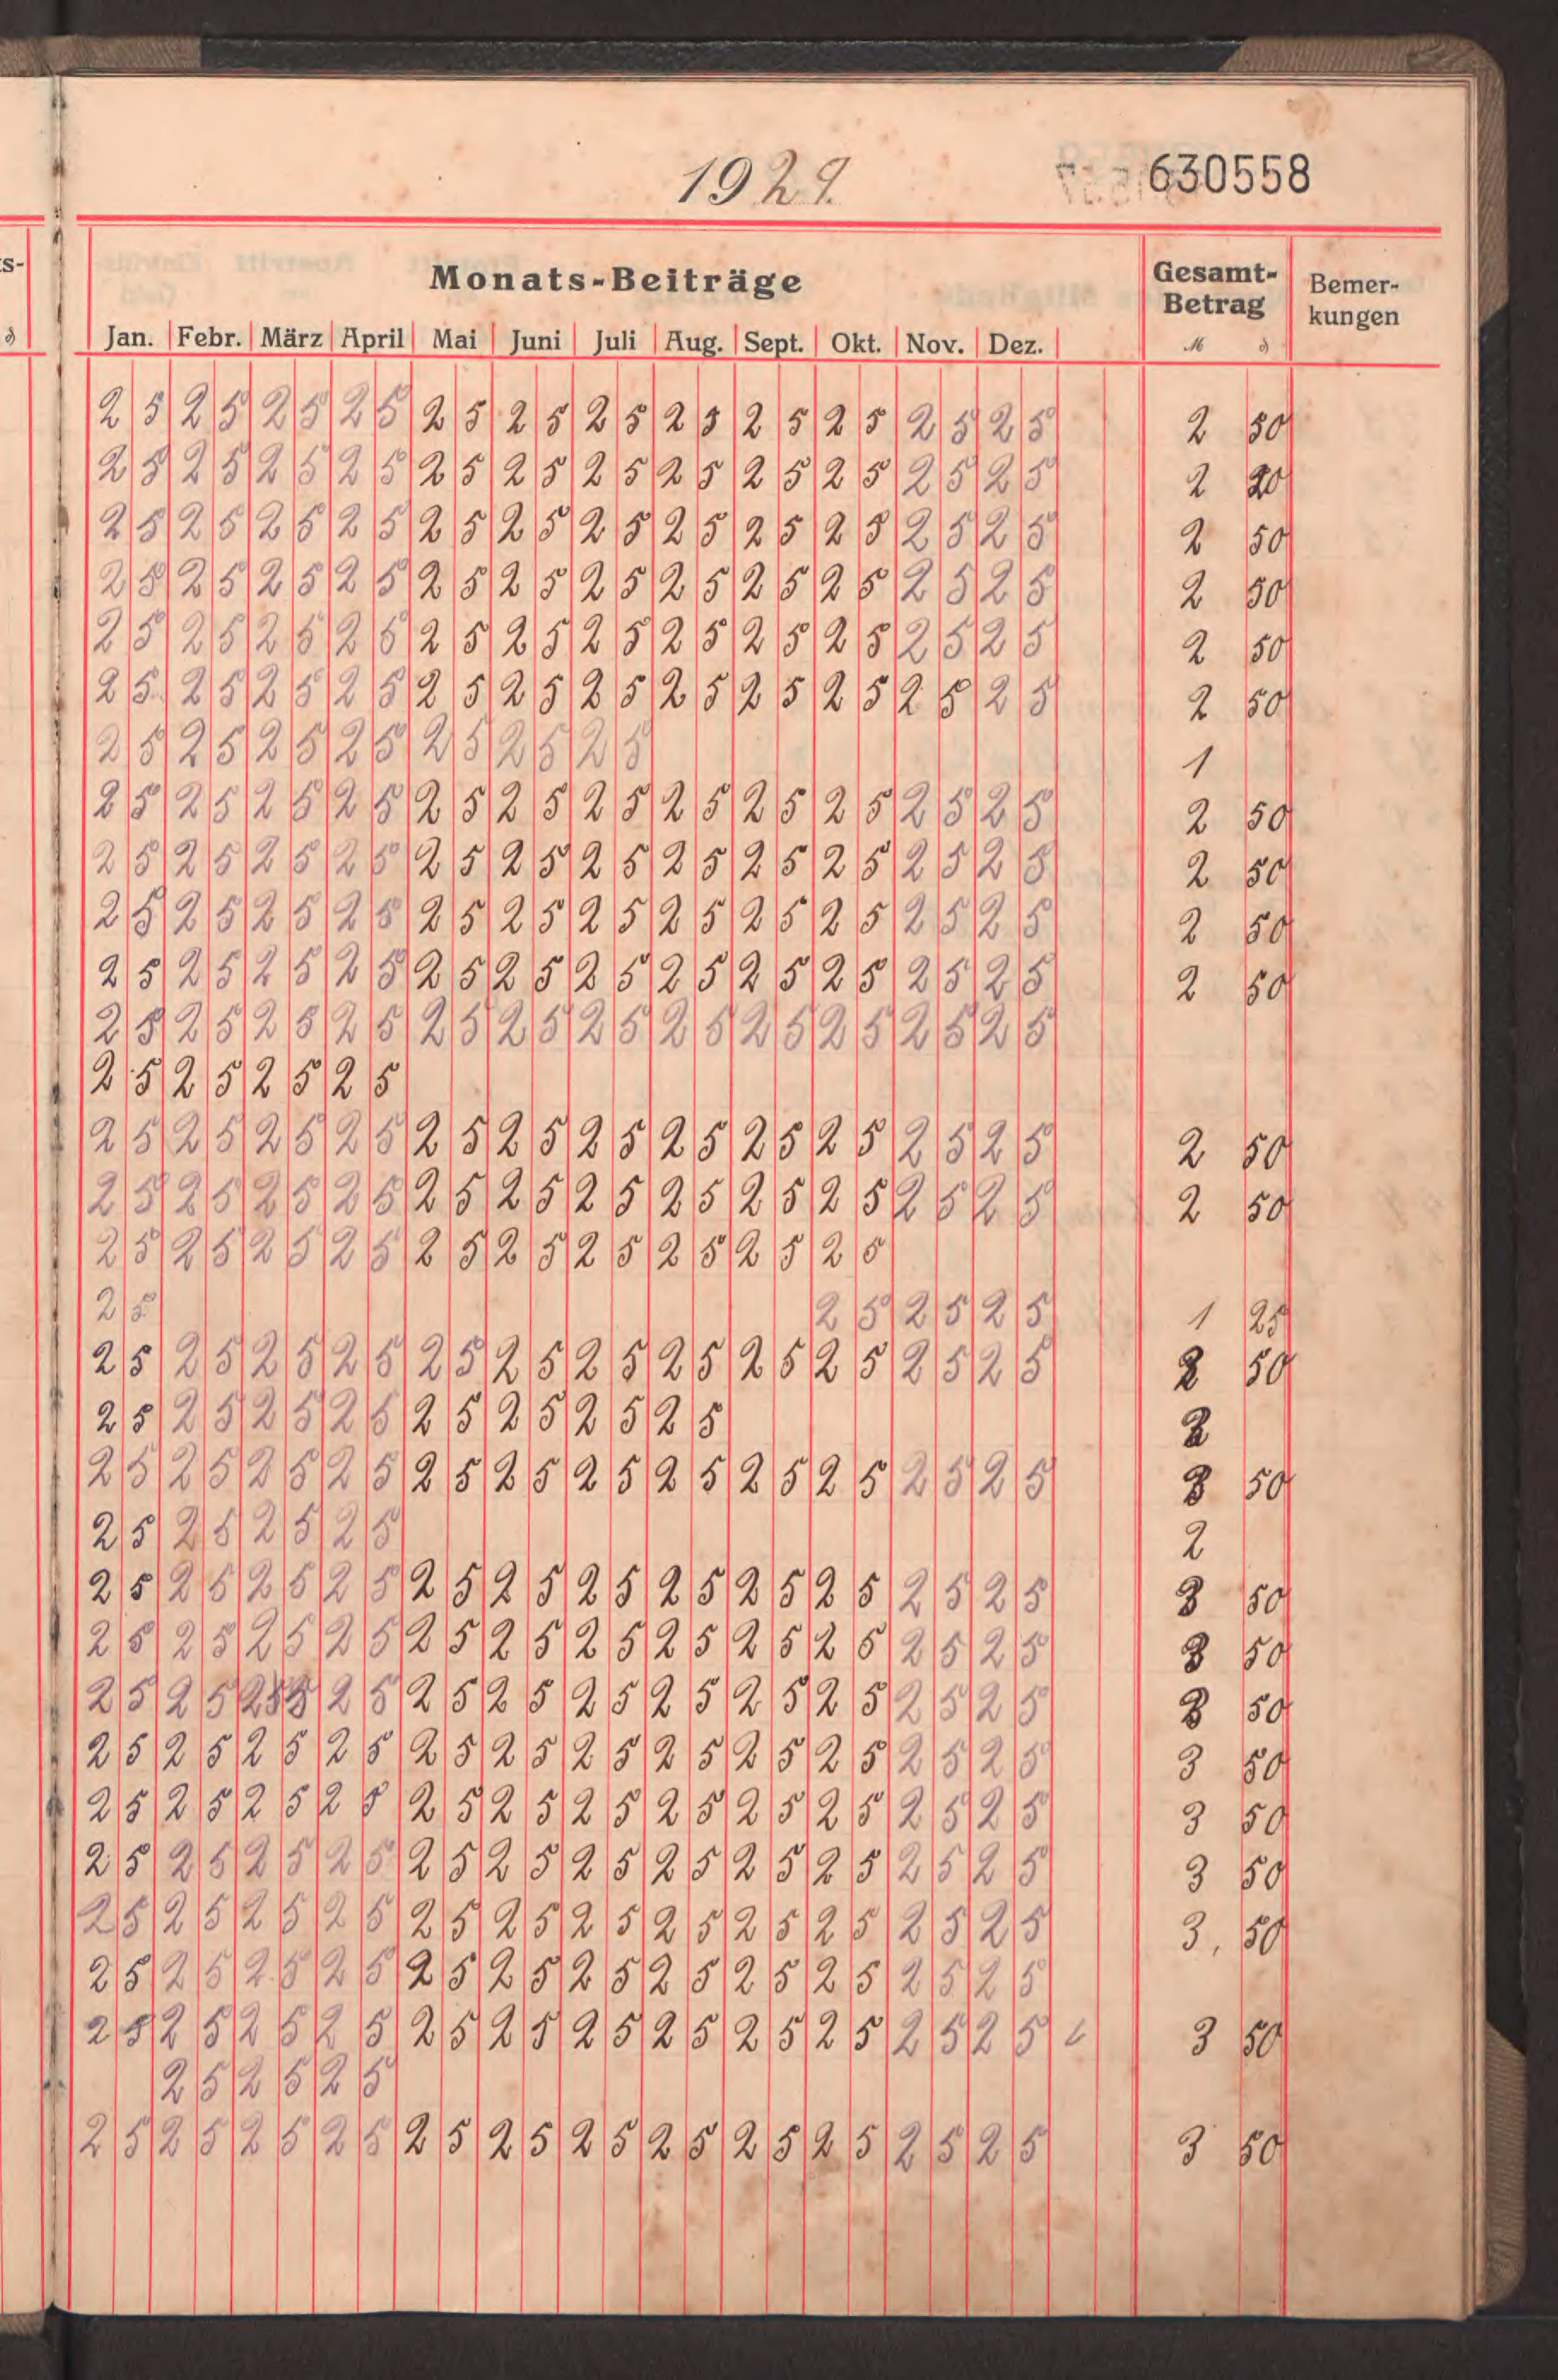 1929.
630558
Monats-Beiträge
Gesamt-Betrag
Bemer-kungen
Jan. Febr. März April Mai Juni Juli Aug. Sept. Okt. Nov. Dez. M ₰
25 25 25 25 25 25 25 25 25 25 25 25 2 50
25 25 25 25 25 25 25 25 25 25 25 25 2
25 25 25 25 25 25 25 25 25 25 25 25 2 50
25 25 25 25 25 25 25 25 25 25 25 25 2 50
25 25 25 25 25 25 25 25 25 25 25 25 2 50
25 25 25 25 25 25 25 25 25 25 25 25 2 50
25 25 25 25 25 25 25 1
25 25 25 25 25 25 25 25 25 25 25 25 2 50
25 25 25 25 25 25 25 25 25 25 25 25 2 50
25 25 25 25 25 25 25 25 25 25 25 25 2 50
25 25 25 25 25 25 25 25 25 25 25 25 2 50
25 25 25 25 25 25 25 25 25 25 25 25
25 25 25 25
25 25 25 25 25 25 25 25 25 25 25 25 2 50
25 25 25 25 25 25 25 25 25 25 25 25 2 50
25 25 25 25 25 25 25 25 25 25
25 25 25 25 1 25
25 25 25 25 25 25 25 25 25 25 25 25 50
25 25 25 25 25 25 25 25
25 25 25 25 25 25 25 25 25 25 25 25 3 50
25 25 25 25 2
25 25 25 25 25 25 25 25 25 25 25 25 3 50
25 25 25 25 25 25 25 25 25 25 25 25 3 50
25 25 25 25 25 25 25 25 25 25 25 3 50
25 25 25 25 25 25 25 25 25 25 25 25 3 50
25 25 25 25 25 25 25 25 25 25 25 25 3 50
25 25 25 25 25 25 25 25 25 25 25 25 3 50
25 25 25 25 25 25 25 25 25 25 25 25 3, 50
25 25 25 25 25 25 25 25 25 25 25 25
25 25 25 25 25 25 25 25 25 25 25 25 3 50
25 25 25
25 25 25 25 25 25 25 25 25 25 25 25 3 50